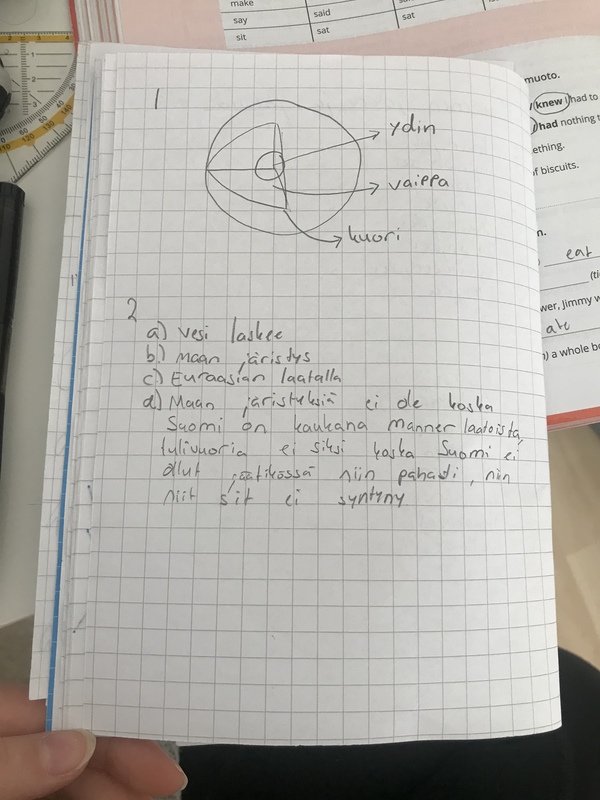 make
say said sat
sit sat
muoto.
knew had to
had nothing t
ething.
of biscuits.
n.
eat
(ti
wer, Jimmy w
ate
) a whole b
1
ydin
vaippa
kuori
2
a) vesi laskee
b) Maan järistys
c) Euraasian laatalla
d) Maan järistyksiä ei ole koska
Suomi on kaukana manner laatoista,
tulivuoria ei siksi koska Suomi ei
ollut jäätikössä niin pahasti, niin
niit sit ei syntyny